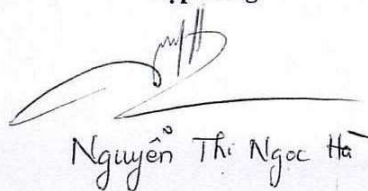 Nguyễn Thị Ngọc Hà